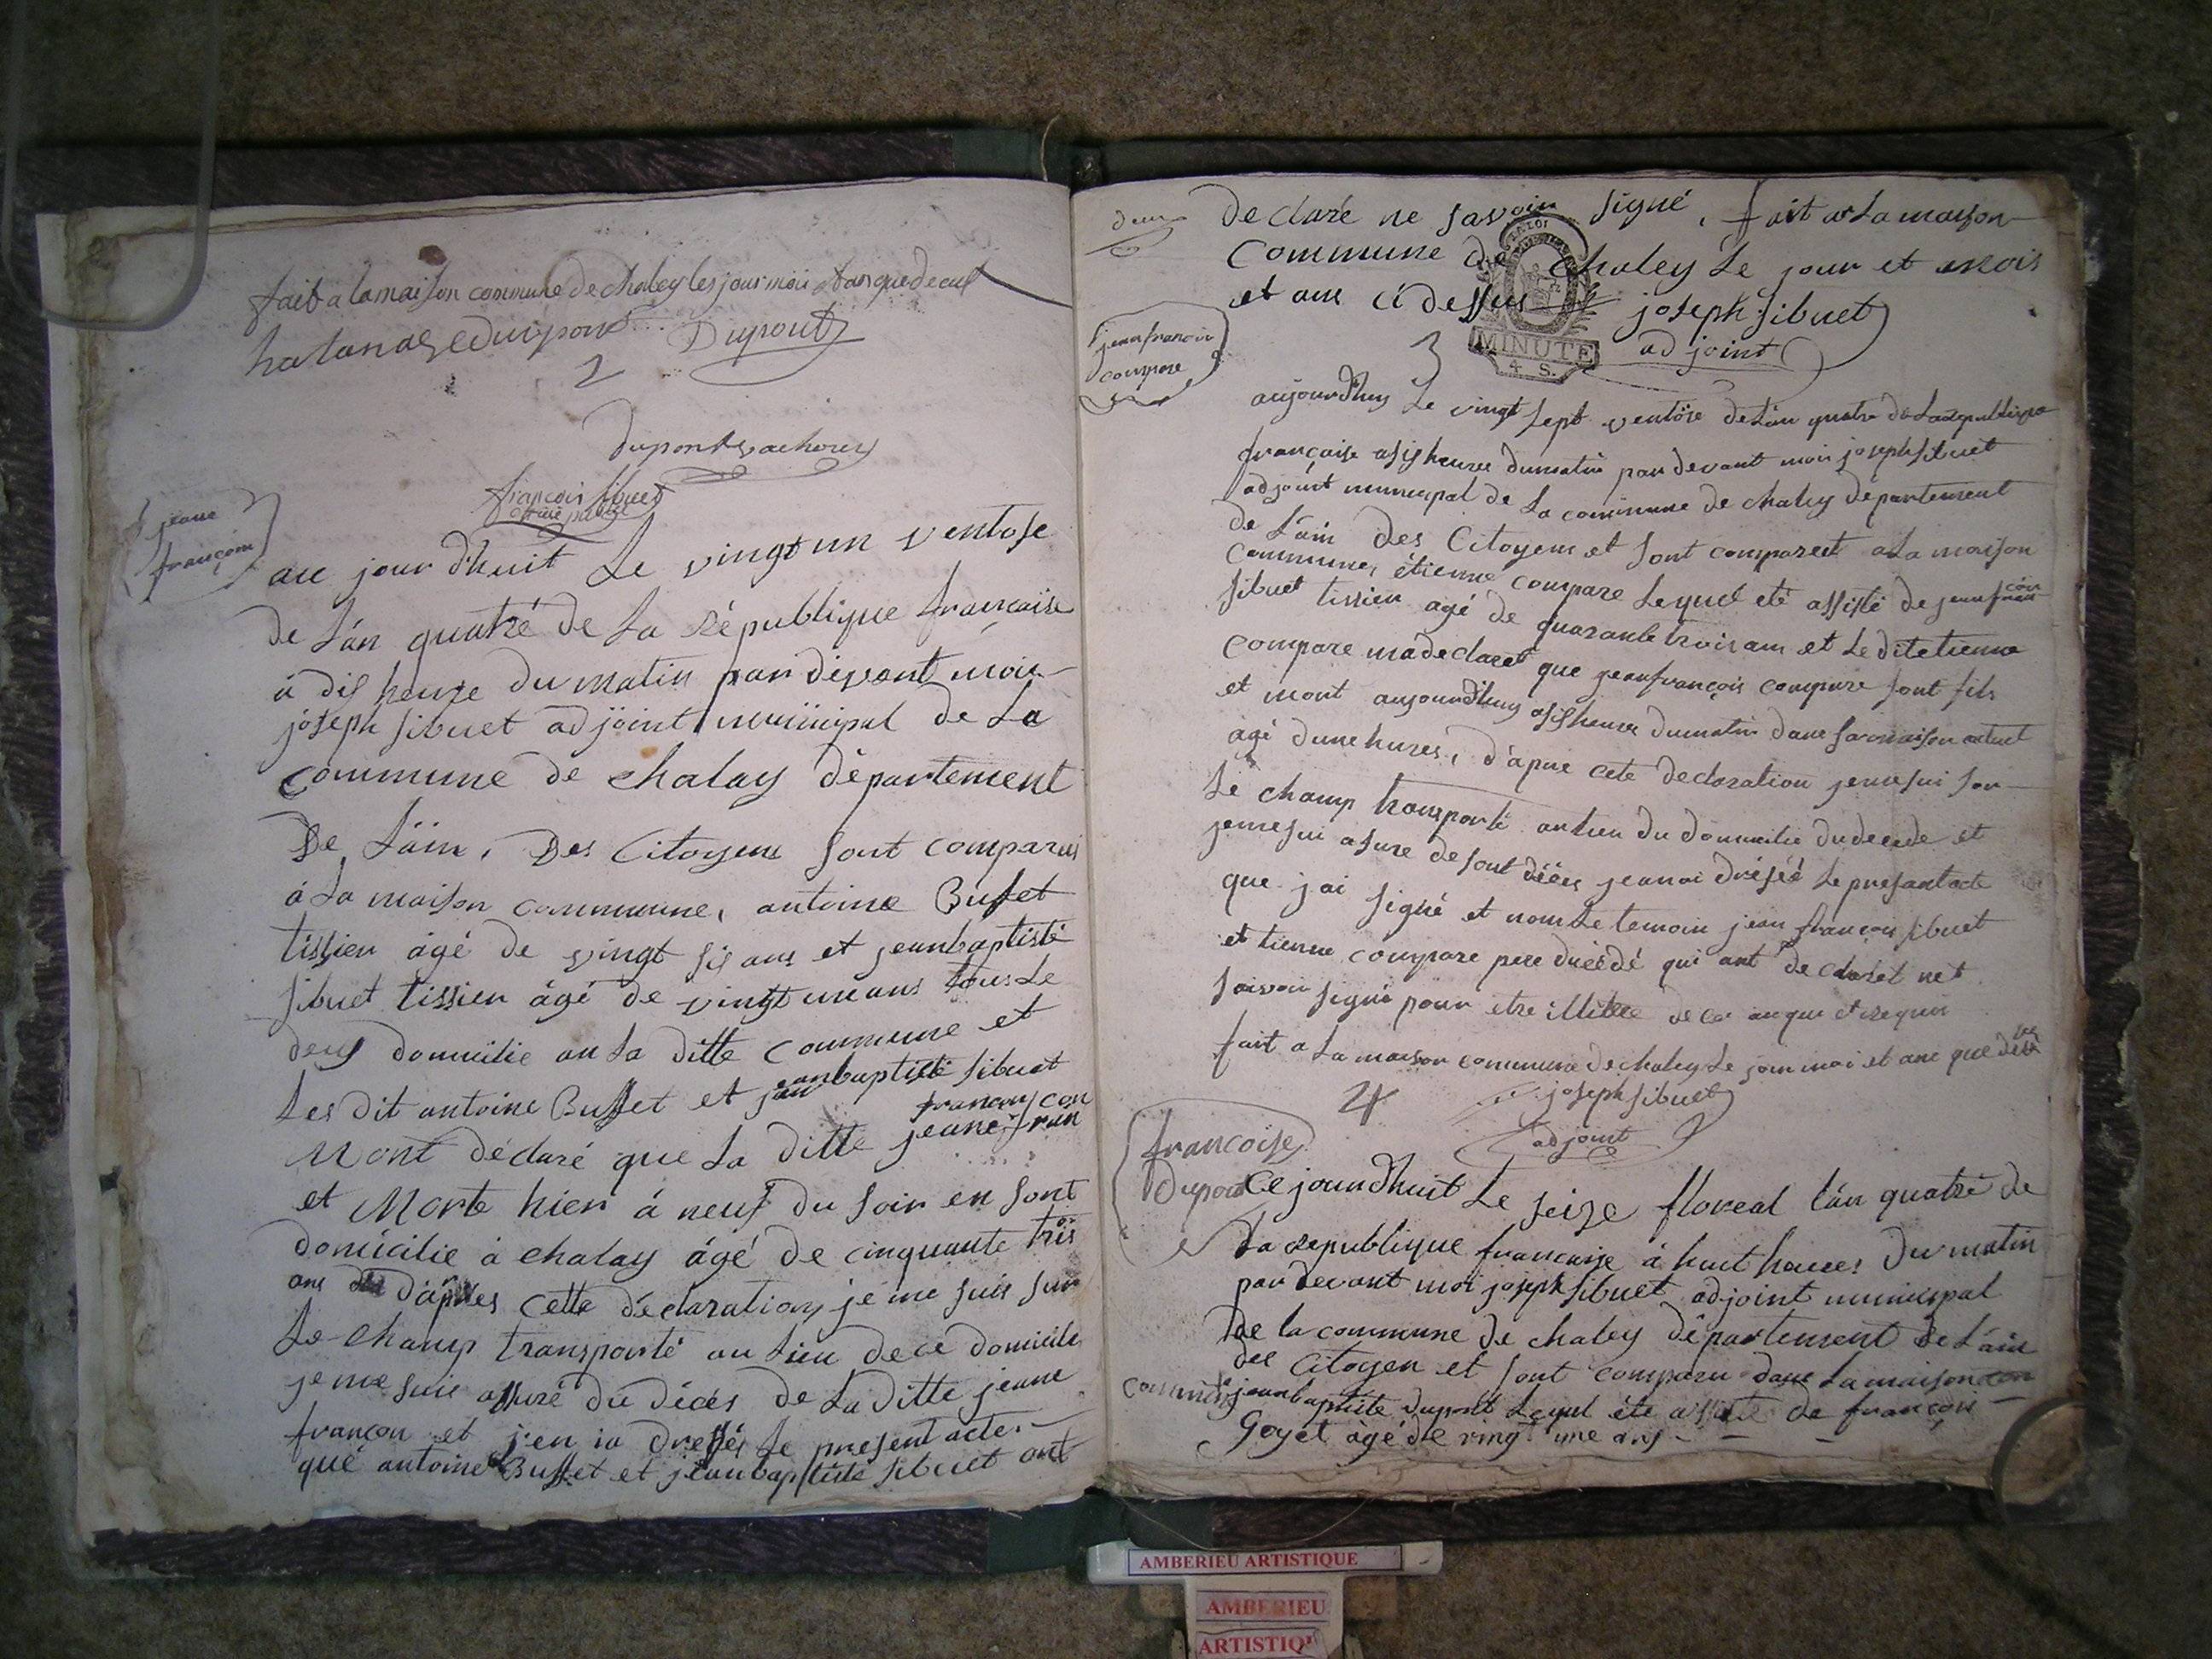 fait a la maison commune de chaley les jour moi et an que deceu
Dupont
2
dupont
françois sibuet
jeane
françon
au jour d'huit Le vingt un ventose
de L'an quatré de La république française
à dis heure du matin par devant moi
joseph sibuet adjoint municipal de La
commune de chalay département
De L'ain, Des Citoyens sont comparus
à La maison commune, antoine Buffet
tissien âgé de vingt sis ans et jeanbaptisté
sibuet tissien âgé de vingt une ans tous Le
deus domicilie au La ditte commune et
Les dit antoine Buffet et jeanbaptisté sibuet
Mont déclaré que La ditte jeane françon
et Morte hier à neuf du soir en sont
domicilie à chalay âgé de cinquante trois
ans d'âprès cette déclaration, je me suis sur
Le champ transporté au Lieu de ce domicile
je me suis assuré du décés de La ditte jeane
françon et j'en ia dressés Le present acte.
qué antoine Buffet et jeanbaptisté sibuet ont
deus
declaré ne savoir signé, fait a La maison
Commune de chaley Le jour et mois
et ans ci dessus joseph sibuet
adjoint
LA LOI
MINUTE
4 S.
jeanfrancois
compare
3
aujourdhuy Le vingt sept ventôse de L'an quatre de La republique
françaisse a sis heures du matin par devant moi joseph sibuet
adjoint municipal de La commune de chaley département
de L'ain Des Citoyens et sont comparent a La maison
commune, étienne compare Lequel eté assisté de jean françois
sibuet tissien agé de quarante trois ans et Ledit etienne
compare ma declaret que jeanfrançois compare sont fils
et mort aujourdhuy a sis heures du matin dans sa maison
agé dune hures, d'âpue cete declaration je me sui sur
Le champ transporté au Lieu du domicilie du decede et
je me sui asure de sont déces je anai drésée Le presant acte
que j'ai signé et nom Le temoin jean françois sibuet
et tienne compare pere decédé qui ont declaret net
saivoir signé pour etre
fait a La maison commune de chaley Le jour moi et ans que
joseph sibuet
adjoint
4
francoise
Dupont
Ce jourdhuit Le seize floreal l'ân quatré de
La republique francaise à huit heures du matin
par devant moi joseph sibuet adjoint municipal
de la commune de chaley département de L'ain
des Citoyen et sont comparu dans La maison
commune jeanbaptiste dupont Lequel éte assisté de françois
Goyet âgé de vingt une ans
AMBERIEU ARTISTIQUE
AMBERIEU
ARTISTIQU